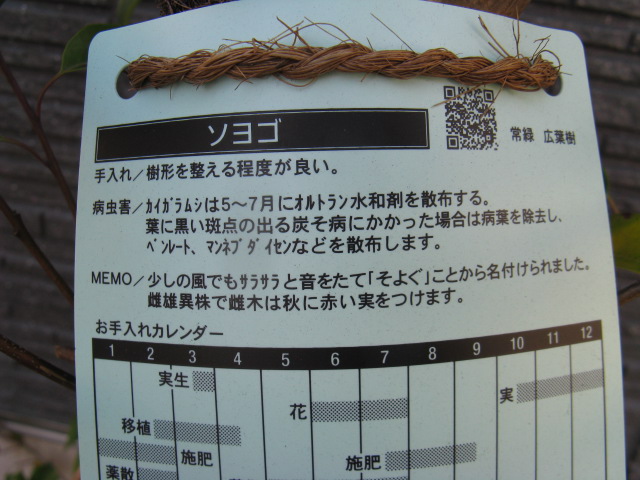 ソヨゴ
常緑 広葉樹
手入れ／樹形を整える程度が良い。
病虫害／ｶｲｶﾞﾗﾑｼは5〜7月にｵﾙﾄﾗﾝ水和剤を散布する。
葉に黒い斑点の出る炭そ病にかかった場合は病葉を除去し、
ﾍﾞﾝﾚｰﾄ、ﾏﾝﾈﾌﾞﾀﾞｲｾﾝなどを散布します。
MEMO／少しの風でもｻﾗｻﾗと音をたて「そよぐ」ことから名付けられました。
雌雄異株で雌木は秋に赤い実をつけます。
お手入れカレンダー
1 2 3 4 5 6 7 8 9 10 11 12
実生
花
実
移植
施肥
施肥
薬散